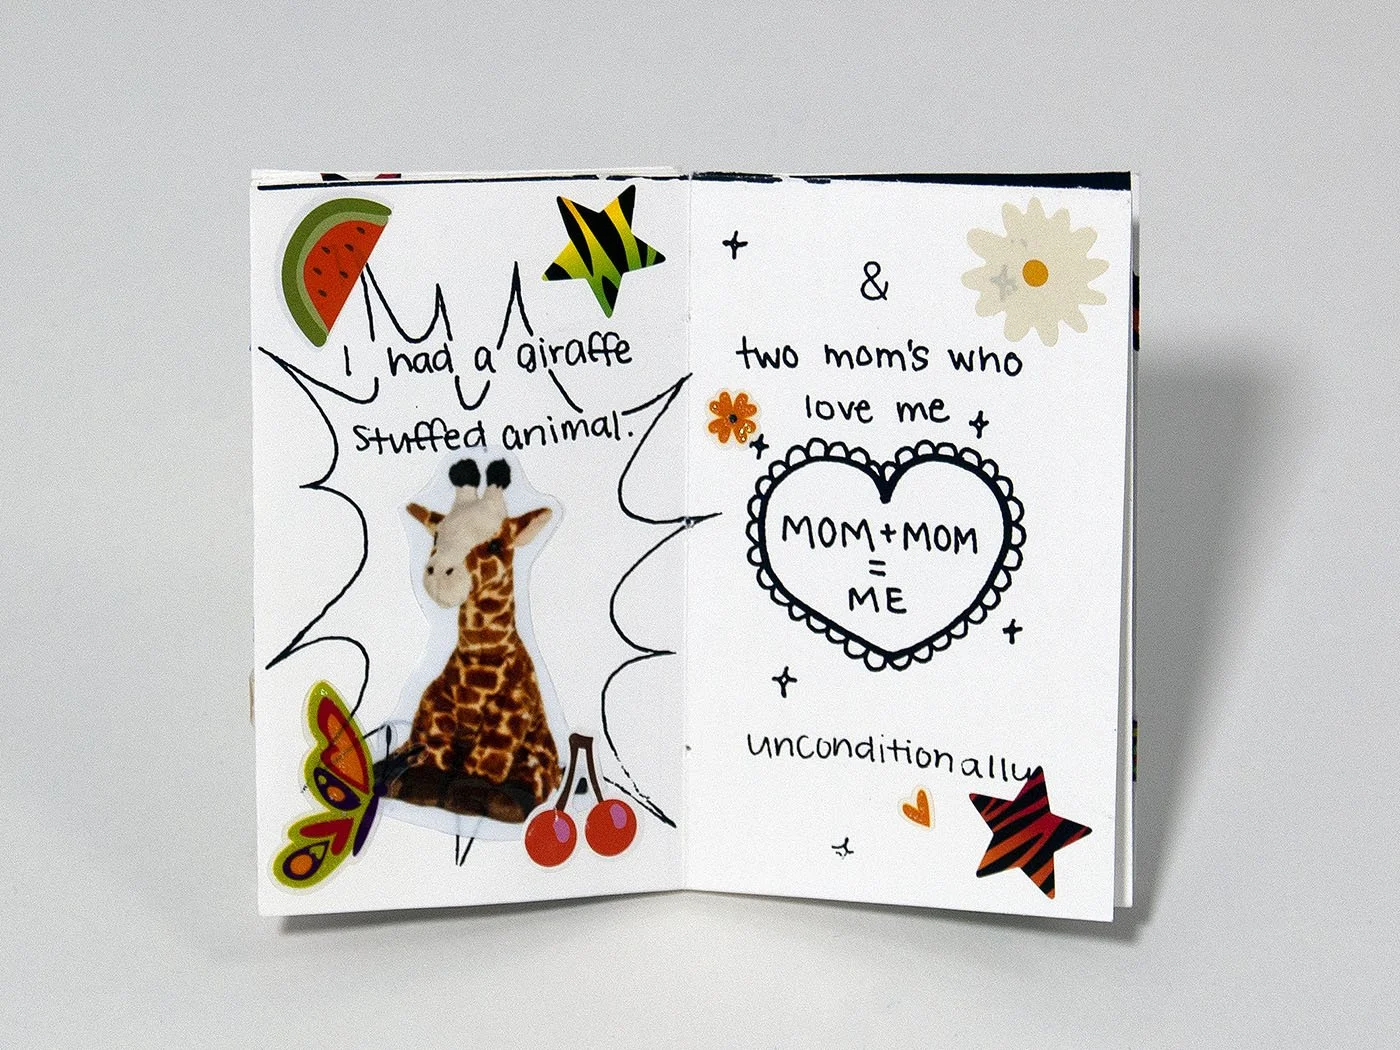 I had a giraffe
stuffed animal.
&
two mom's who
love me
MOM+MOM
=
ME
unconditionally